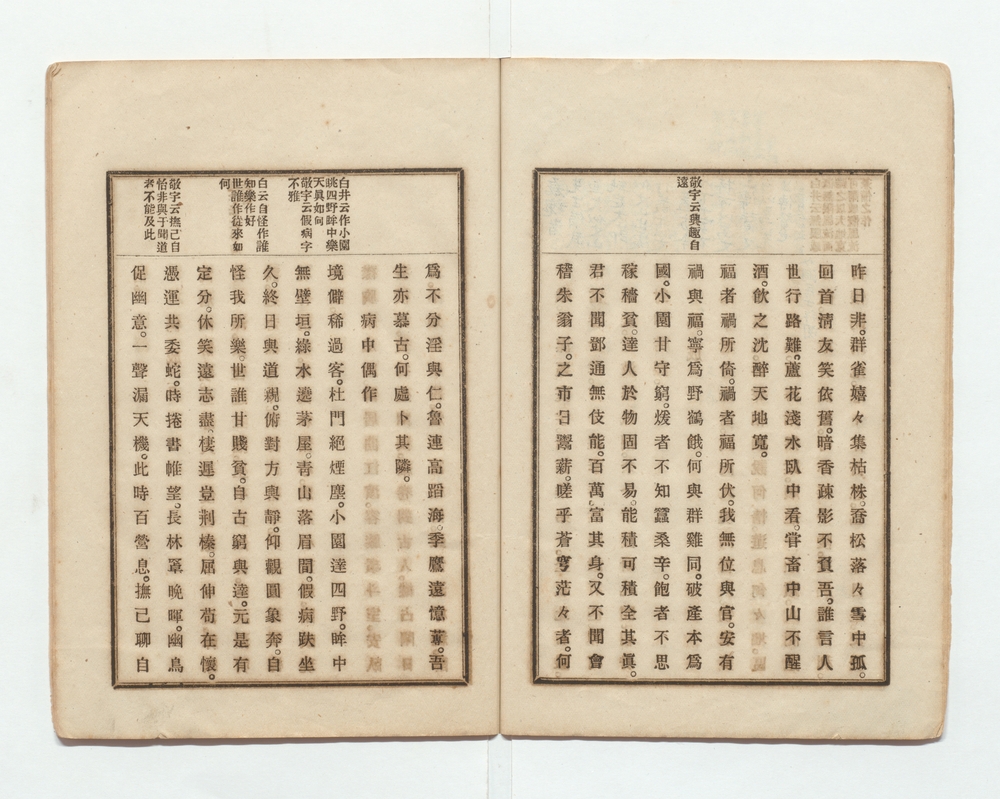 敬宇云興趣自
遠
昨日非。群雀嬉々集枯株。喬松落々雪中孤。
回首淸友笑依舊。暗香疎影不負吾。誰言人
世行路難。蘆花淺水臥中看。甞畜中山不醒
酒。飮之沈醉天地寬。
福者禍所倚。禍者福所伏。我無位與官。安有
禍與福。寧爲野鶴餓。何與群雞同。破產本爲
國。小園甘守窮。煖者不知蠶桑辛。飽者不思
稼穡貧。達人於物固不易。能積可積全其眞。
君不聞鄧通無伎能。百萬富其身。又不聞會
稽朱翁子。之市日鬻薪。嗟乎蒼穹茫々者。何
白井云作小園
眺四野眸中樂
天眞如何
敬宇云假病字
不雅
白云自怪作誰
知樂作好
世誰作從來如
何
敬宇云撫己自
怡非與于聞道
者不能及此
爲不分淫與仁。魯連高蹈海。季鷹遠憶蓴。吾
生亦慕古。何處卜其隣。
病中偶作
境僻稀過客。杜門絕煙塵。小園達四野。眸中
無壁垣。綠水遶茅屋。靑山落眉間。假病趺坐
久。終日與道親。俯對方輿靜。仰觀圓象奔。自
怪我所樂。世誰甘賤貧。自古窮與達。元是有
定分。休笑遠志盡。棲遲豈荆榛。屈伸苟在懷。
憑運共委蛇。時捲書帷望。長林罩晚暉。幽鳥
促幽意。一聲漏天機。此時百營息。撫已聊自